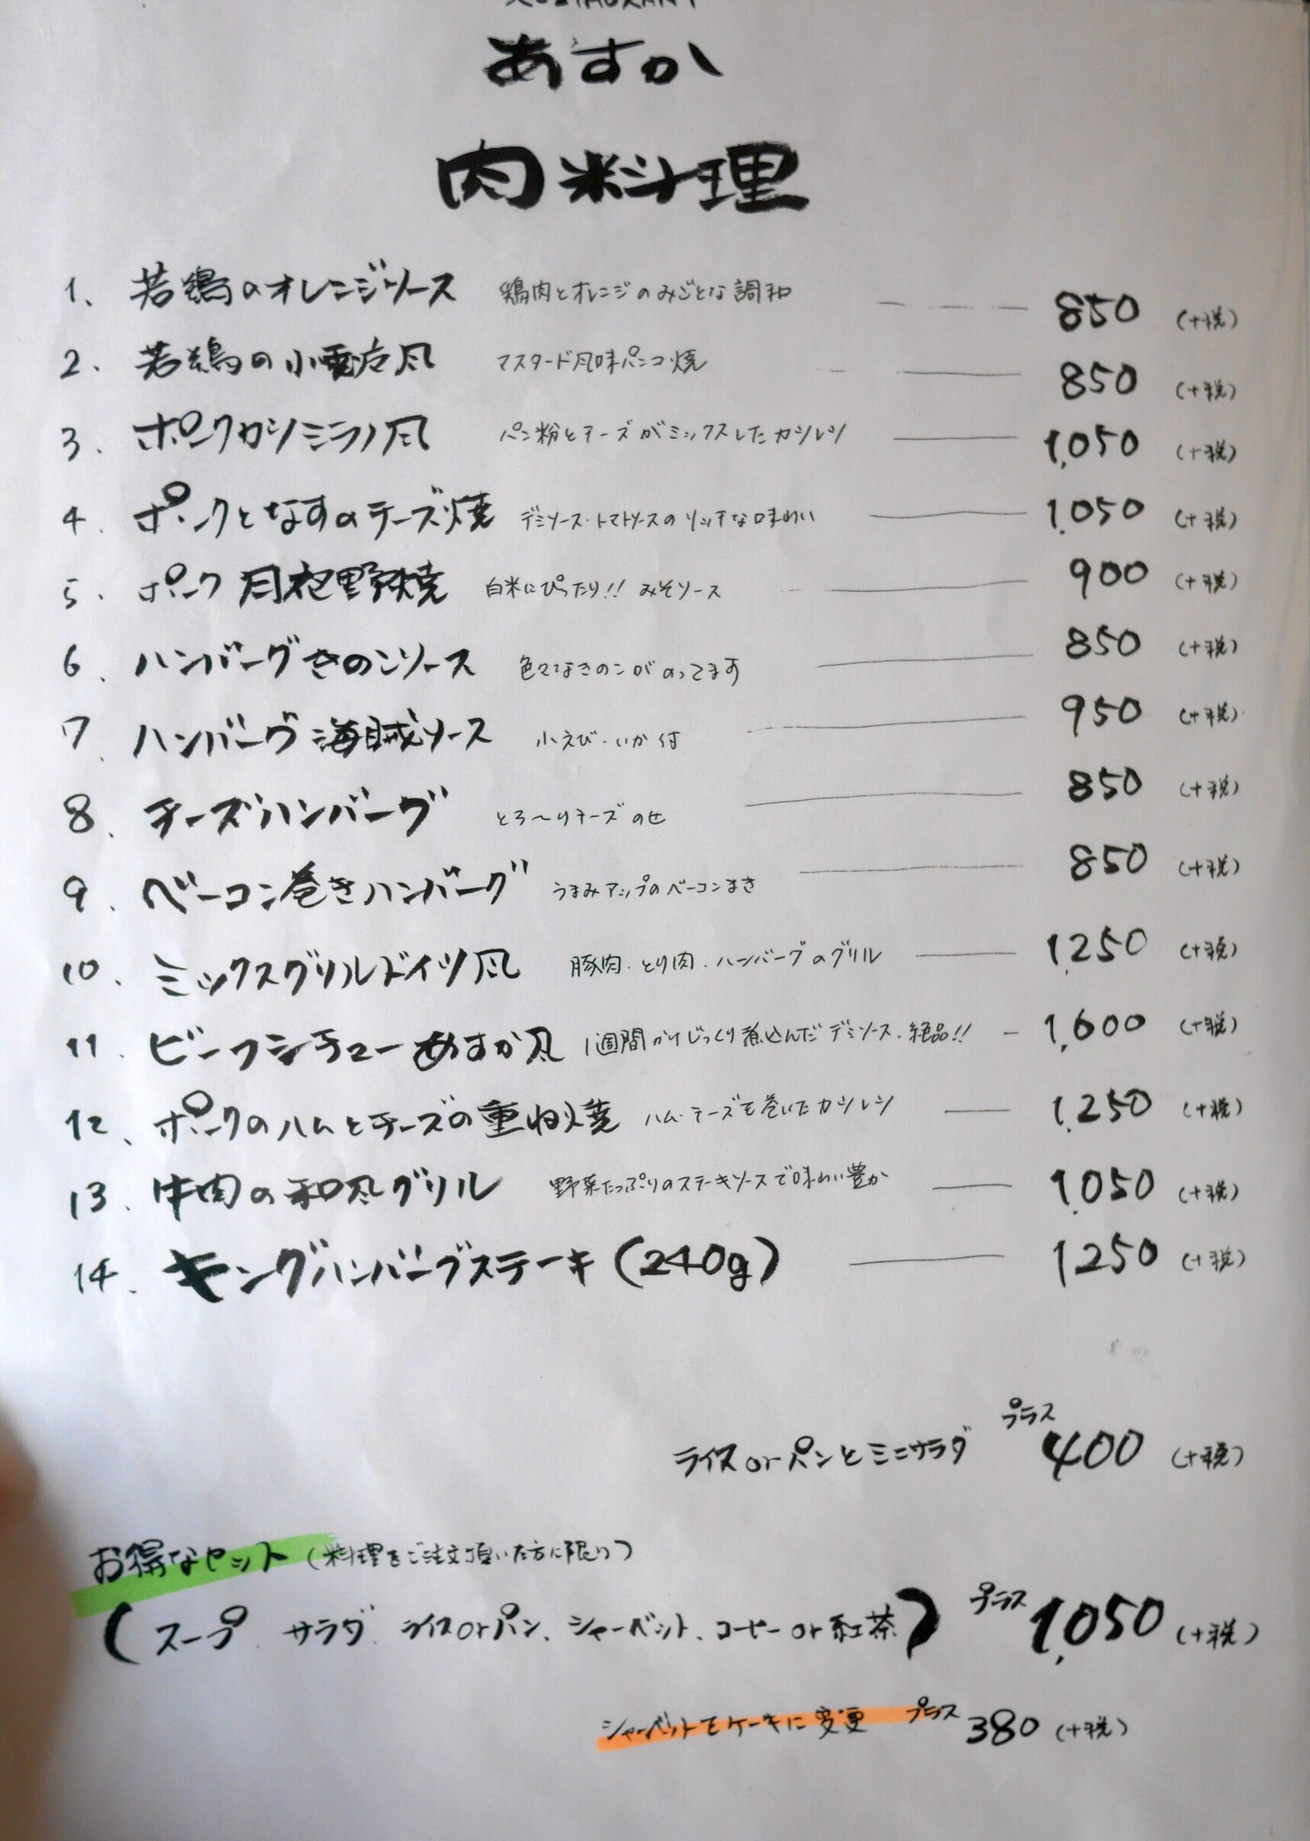 あすか
肉料理
1、 若鶏のオレンジソース 鶏肉とオレンジのみごとな調和 850 (+税)
2. 若鶏の小悪魔風 マスタード風味パン粉焼 850 (+税)
3. ポークカツミラノ風 パン粉とチーズがミックスしたカツレツ 1,050 (+税)
4. ポークとなすのチーズ焼 デミソース・トマトソースのリッチな味わい 1,050 (+税)
5. ポーク月夜野焼 白米にぴったり!! みそソース 900 (+税)
6. ハンバーグきのこソース 色々なきのこがのってます 850 (+税)
7. ハンバーグ海賊ソース 小えび・いか付 950 (+税)
8. チーズハンバーグ とろ〜りチーズのせ 850 (+税)
9. ベーコン巻きハンバーグ うまみアップのベーコンまき 850 (+税)
10. ミックスグリルドイツ風 豚肉・とり肉・ハンバーグのグリル 1,250 (+税)
11. ビーフシチューあすか風 1週間かけじっくり煮込んだデミソース・絶品!! 1,600 (+税)
12、 ポークのハムとチーズの重ね焼 ハム・チーズを巻いたカツレツ 1,250 (+税)
13. 牛肉の和風グリル 野菜たっぷりのステーキソースで味わい豊か 1,050 (+税)
14. キングハンバーグステーキ(240g) 1250 (+税)
ライスorパンとミニサラダ プラス 400 (+税)
お得なセット (料理をご注文頂いた方に限り)
(スープ、サラダ、ライスorパン、シャーベット、コーヒーor紅茶) プラス 1,050 (+税)
シャーベットをケーキに変更 プラス 380 (+税)